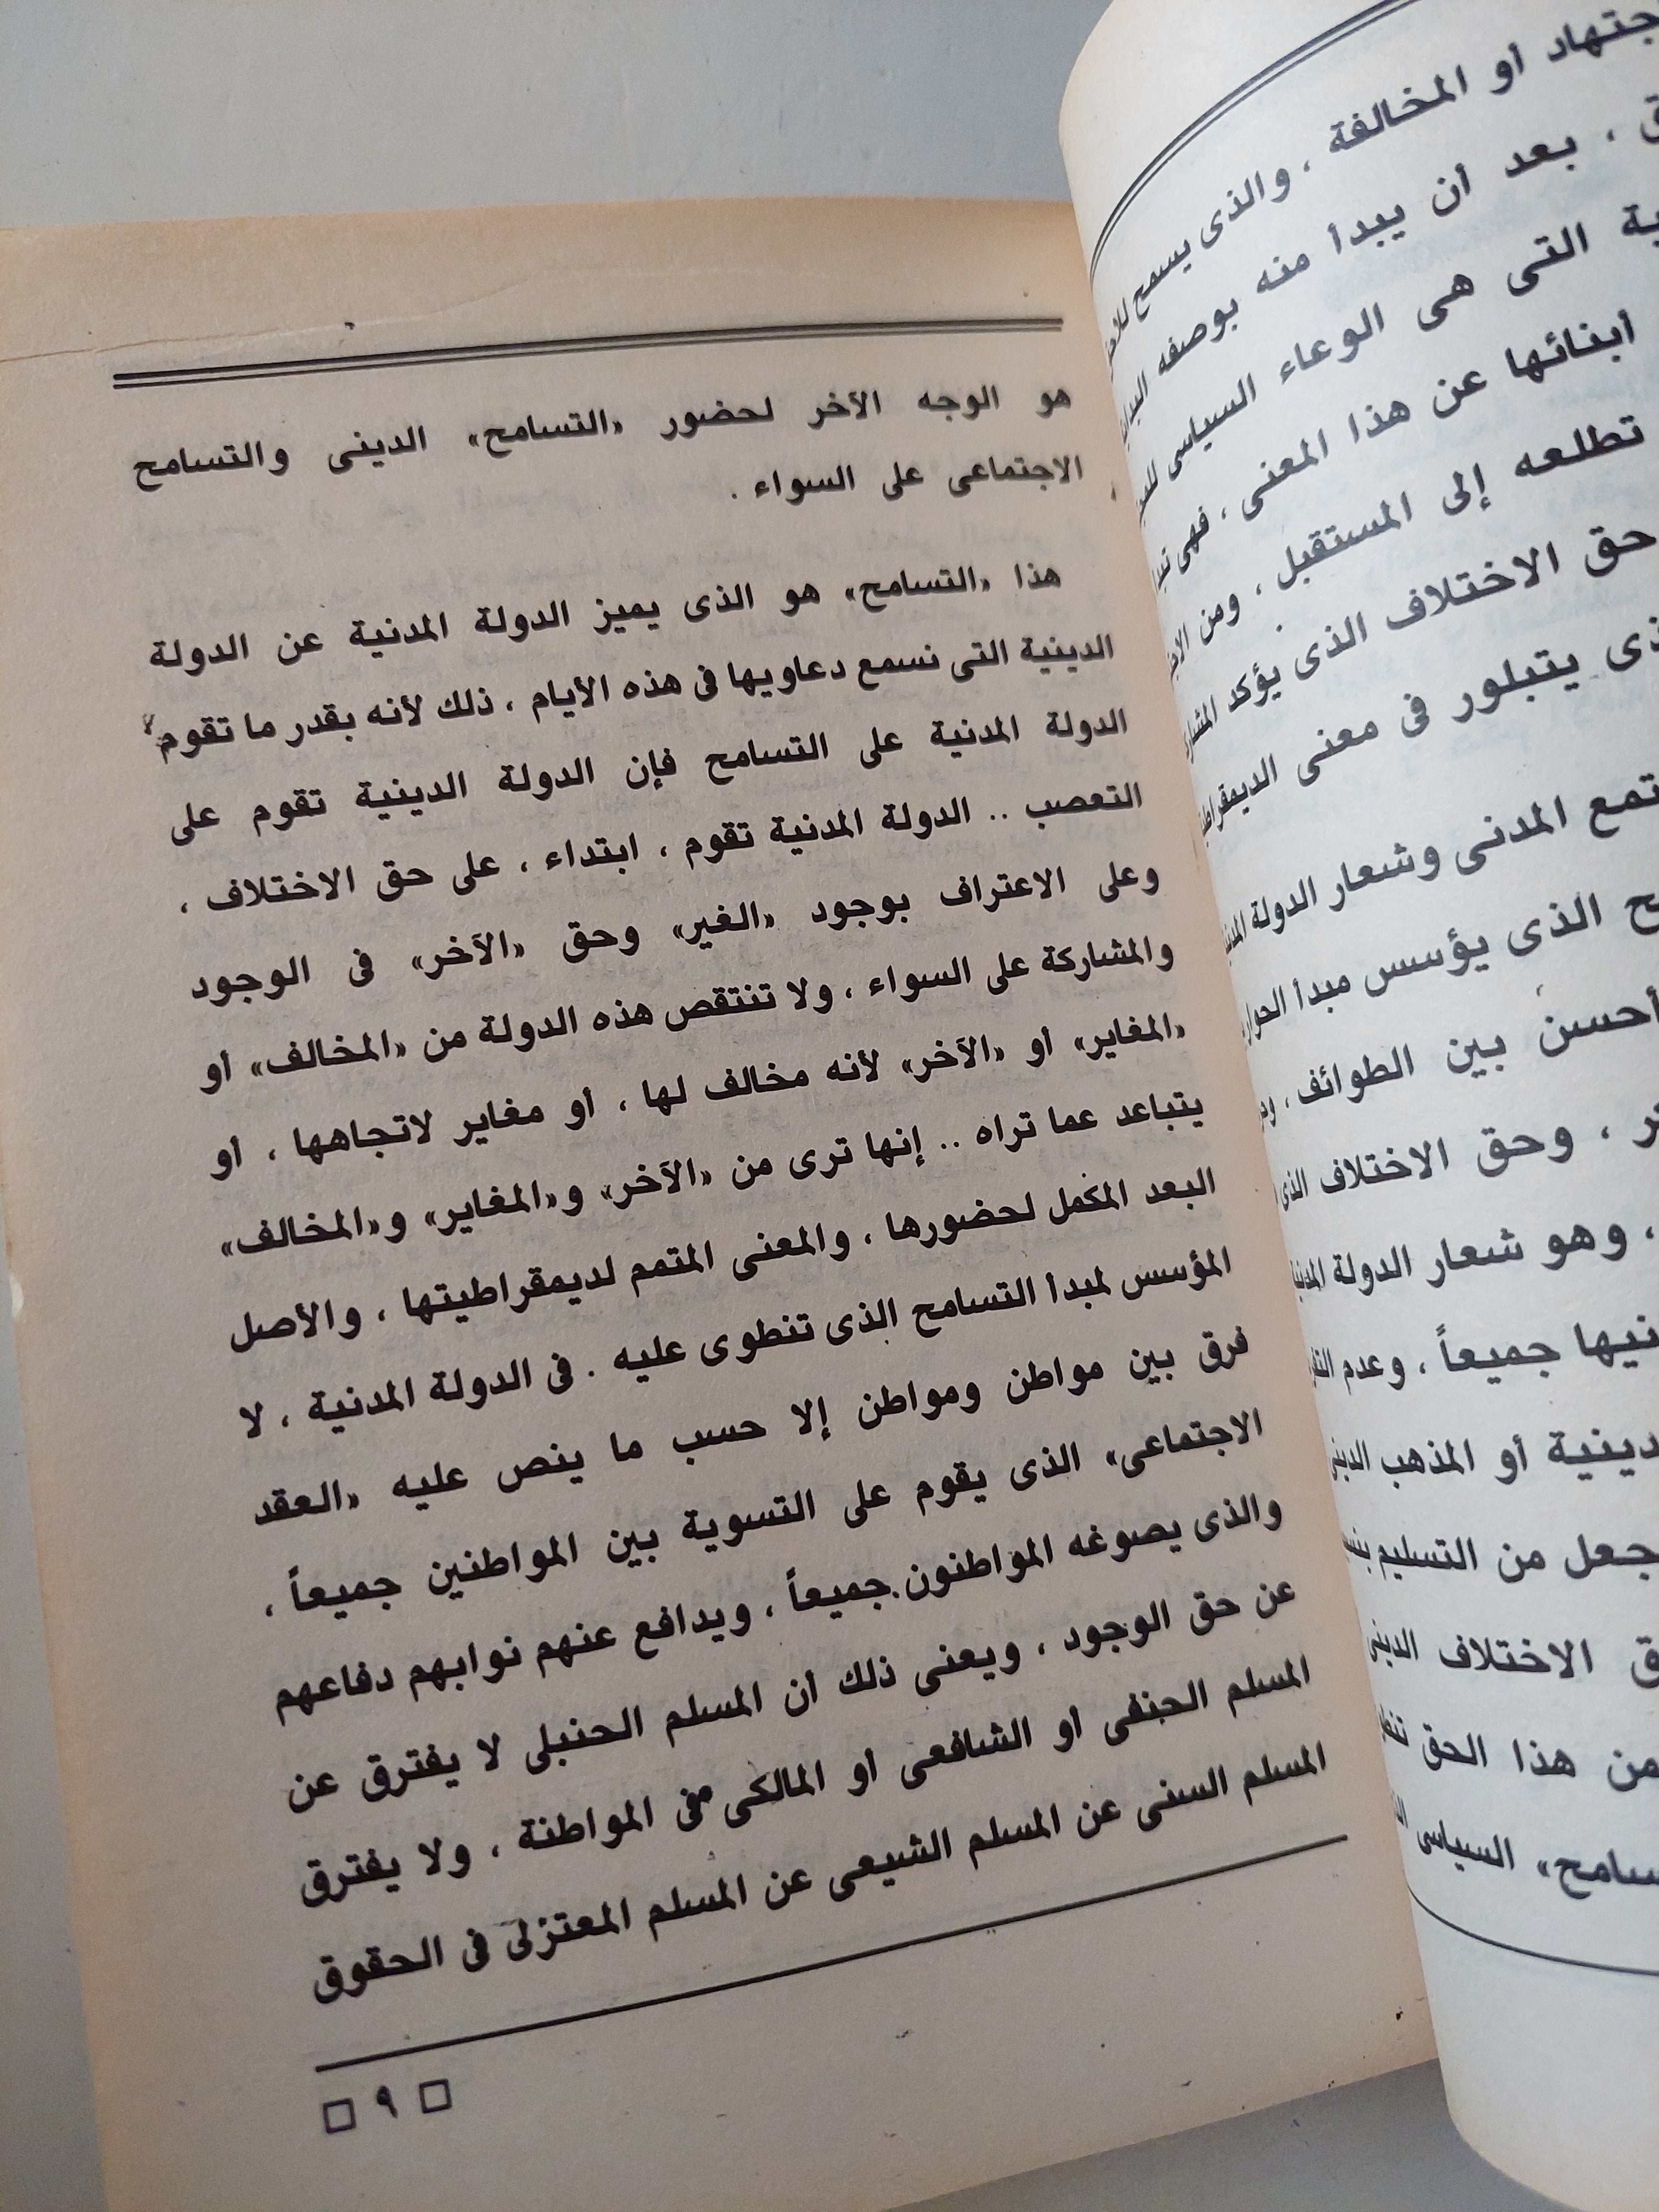 جتهاد أو المخالفة ، والذى يسمح
، بعد أن يبدأ منه بوصفه
التى هى الوعاء السياسى
أبنائها عن هذا المعنى ، فهى
تطلعه إلى المستقبل ، ومن
حق الاختلاف الذى يؤكد
يتبلور فى معنى
المدنى وشعار الدولة
الذى يؤسس مبدأ الحوار
أحسن بين الطوائف ،
، وحق الاختلاف الذى
، وهو شعار الدولة المدنية
جميعاً ، وعدم
أو المذهب الدينى
جعل من التسليم
الاختلاف الدينى
من هذا الحق
السياسى
هو الوجه الآخر لحضور «التسامح» الدينى والتسامح
الاجتماعى على السواء .
هذا «التسامح» هو الذى يميز الدولة المدنية عن الدولة
الدينية التى نسمع دعاويها فى هذه الأيام ، ذلك لأنه بقدر ما تقوم
الدولة المدنية على التسامح فإن الدولة الدينية تقوم على
التعصب .. الدولة المدنية تقوم ، ابتداء ، على حق الاختلاف ،
وعلى الاعتراف بوجود «الغير» وحق «الآخر» فى الوجود
والمشاركة على السواء ، ولا تنتقص هذه الدولة من «المخالف» أو
«المغاير» أو «الآخر» لأنه مخالف لها ، أو مغاير لاتجاهها ، أو
يتباعد عما تراه .. إنها ترى من «الآخر» و«المغاير» و«المخالف»
البعد المكمل لحضورها ، والمعنى المتمم لديمقراطيتها ، والأصل
المؤسس لمبدأ التسامح الذى تنطوى عليه . فى الدولة المدنية ، لا
فرق بين مواطن ومواطن إلا حسب ما ينص عليه «العقد
الاجتماعى» الذى يقوم على التسوية بين المواطنين جميعاً ،
والذى يصوغه المواطنون جميعاً ، ويدافع عنهم نوابهم دفاعهم
عن حق الوجود ، ويعنى ذلك أن المسلم الحنبلى لا يفترق عن
المسلم الحنفى أو الشافعى أو المالكى فى المواطنة ، ولا يفترق
المسلم السنى عن المسلم الشيعى عن المسلم المعتزلى فى الحقوق
٩